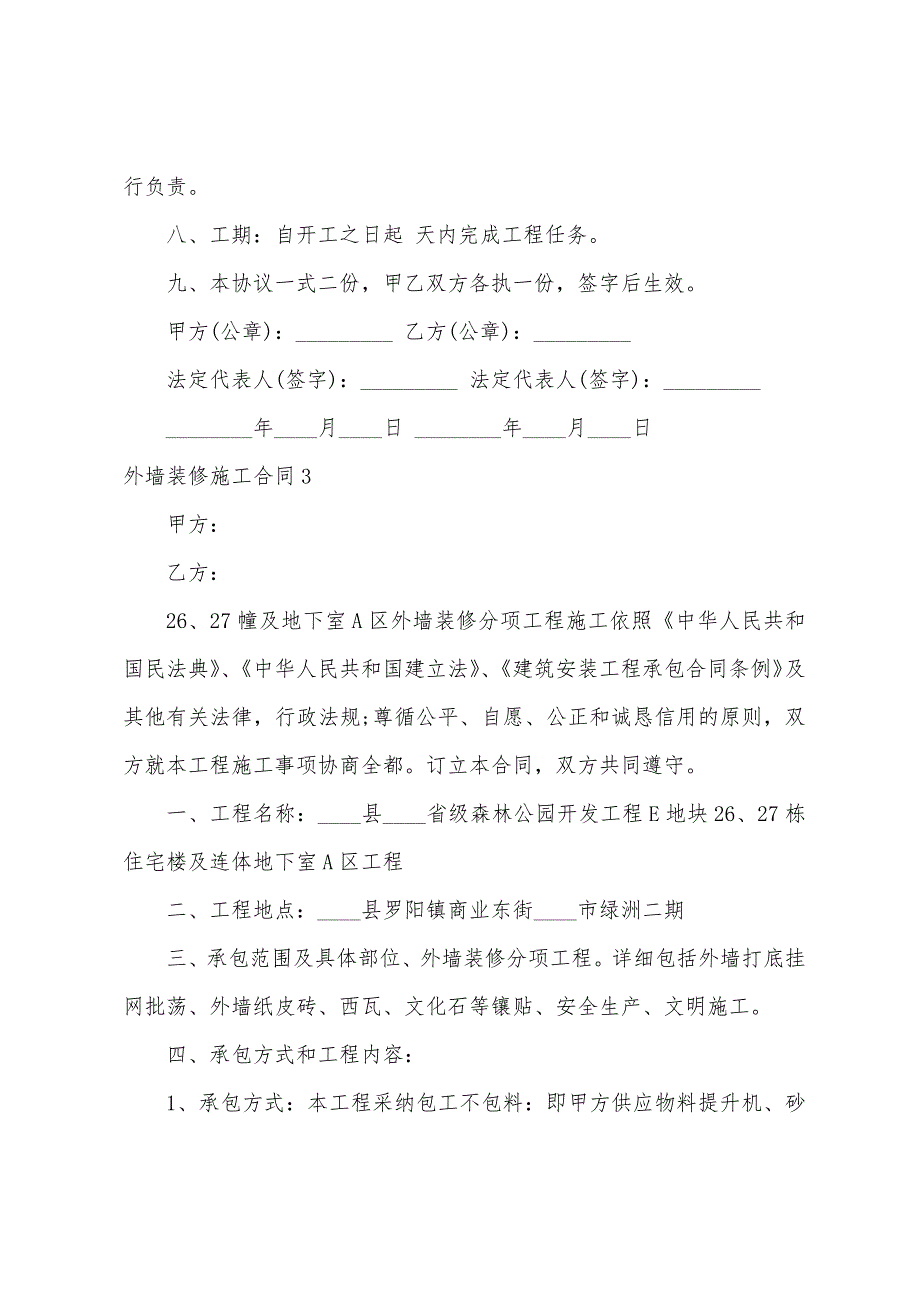 行负责。
八、工期：自开工之日起 天内完成工程任务。
九、本协议一式二份，甲乙双方各执一份，签字后生效。
甲方(公章)：_________ 乙方(公章)：_________
法定代表人(签字)：_________ 法定代表人(签字)：_________
________年____月____日 ________年____月____日
外墙装修施工合同3
甲方：
乙方：
26、27幢及地下室A区外墙装修分项工程施工依照《中华人民共和
国民法典》、《中华人民共和国建立法》、《建筑安装工程承包合同条例》及
其他有关法律，行政法规;尊循公平、自愿、公正和诚恳信用的原则，双
方就本工程施工事项协商全都。订立本合同，双方共同遵守。
一、工程名称：____县____省级森林公园开发工程E地块26、27栋
住宅楼及连体地下室A区工程
二、工程地点：____县罗阳镇商业东街____市绿洲二期
三、承包范围及具体部位、外墙装修分项工程。详细包括外墙打底挂
网批荡、外墙纸皮砖、西瓦、文化石等镶贴、安全生产、文明施工。
四、承包方式和工程内容：
1、承包方式：本工程采纳包工不包料：即甲方供应物料提升机、砂